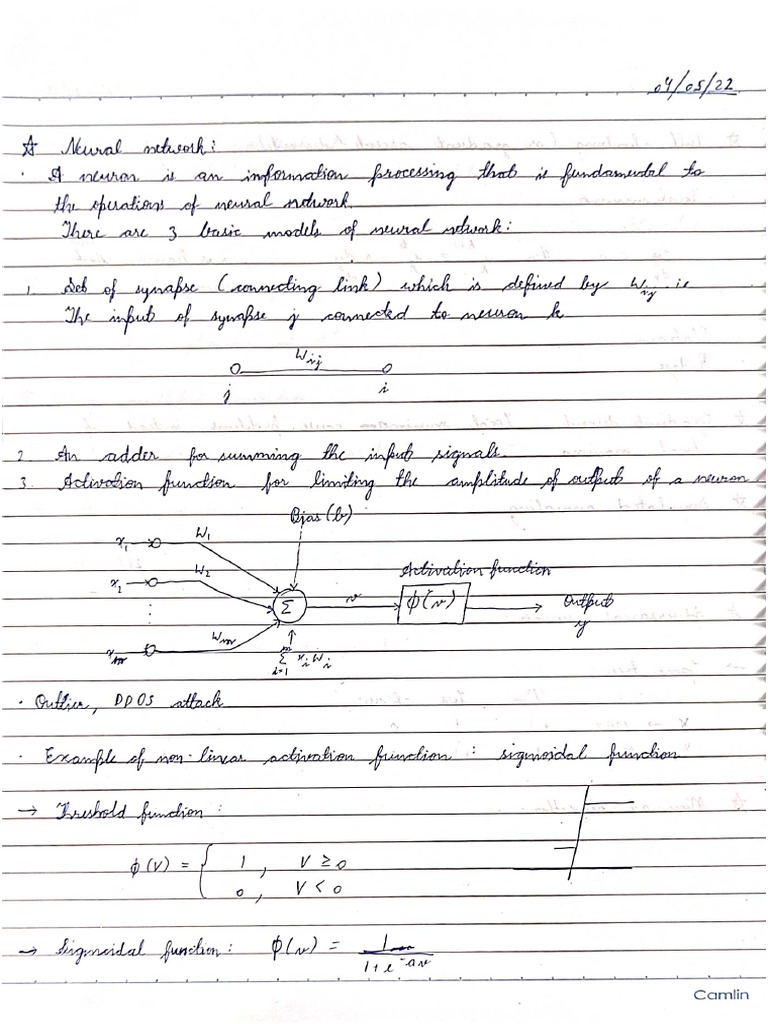 04/05/22
☆ Neural network:
· A neuron is an information processing that is fundamental to
the operations of neural network.
There are 3 basic models of neural network:
1. Set of synapse (connecting link) which is defined by Wij ie
The input of synapse j connected to neuron k
Wij
j i
2. An adder for summing the input signals.
3. Activation function for limiting the amplitude of output of a neuron
Bias (b)
x1 W1
Activation function
x2 W2
Σ v ϕ(v) Output
y
xm Wm
m
Σ xi Wi
i=1
· Outlier, DDOS attack
· Example of non-linear activation function : sigmoidal function
→ Threshold function :
ϕ(V) = { 1 , V ≥ 0
0 , V < 0
→ Sigmoidal function : ϕ(v) = 1
1 + e^-av
Camlin